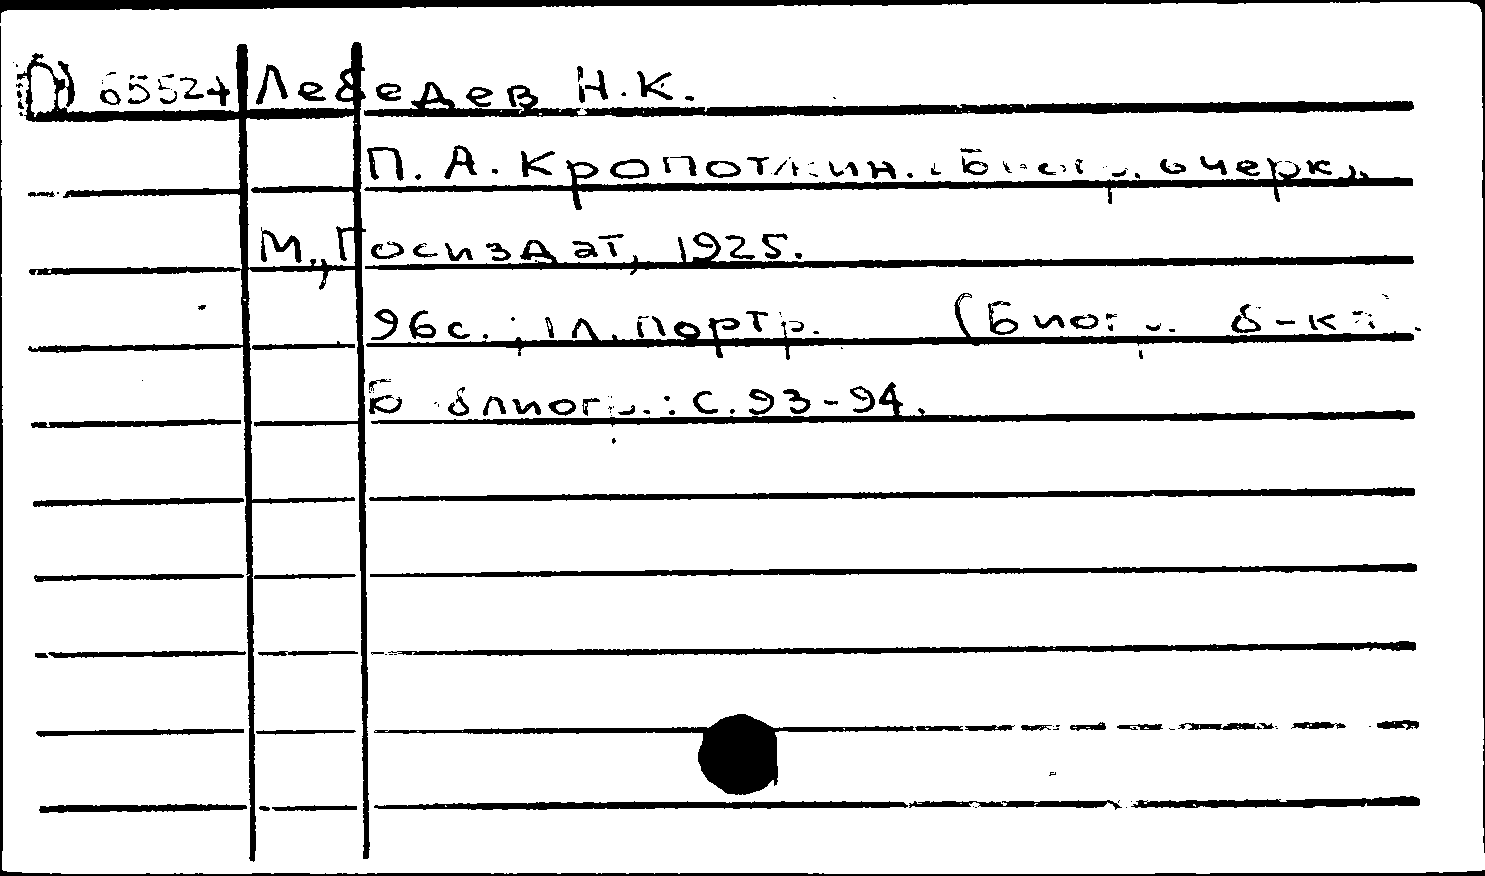 П) 65524 Лебедев Н.К.
П. А. Кропоткин. (Биогр. очерк).
М., Госиздат, 1925.
96с.; 1 л. портр. (Биогр. б-ка).
Библиогр.: с. 93-94.